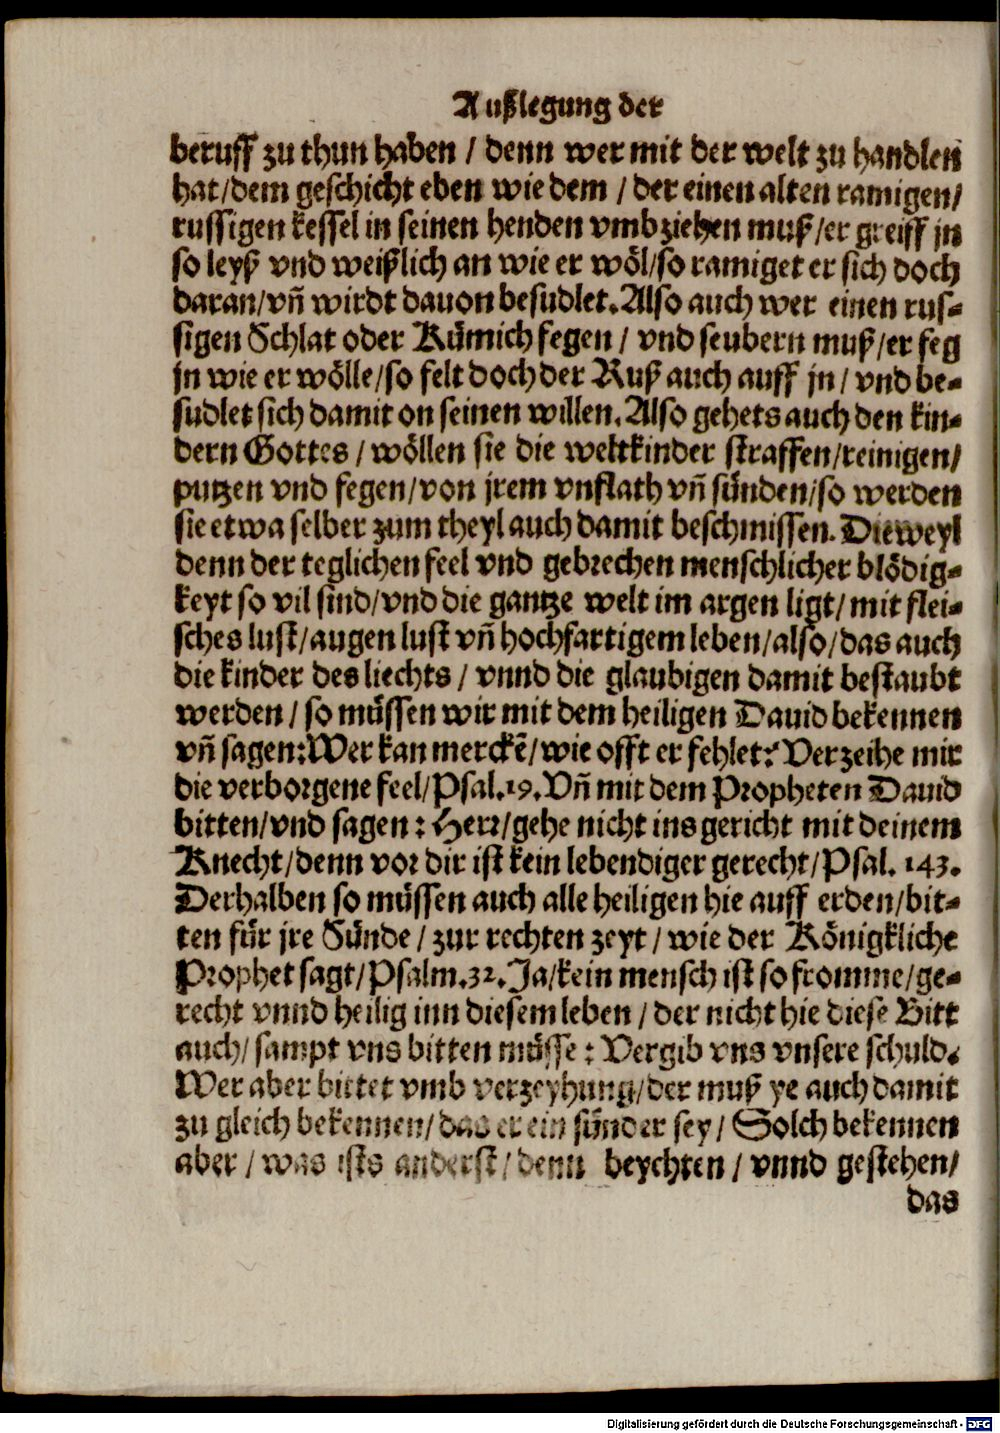 Außlegung der
beruff zu thun haben / denn wer mit der welt zu handlen
hat/dem geschicht eben wie dem / der einen alten ramigen/
russigen kessel in seinen henden vmbziehen muß/er greiff jn
so leyß vnd weißlich an wie er wöl/so ramiget er sich doch
daran/vñ wirdt dauon besudlet. Also auch wer einen rus-
sigen Schlat oder Kümich fegen / vnd seubern muß/er feg
jn wie er wölle/so felt doch der Ruß auch auff jn / vnd be-
sudlet sich damit on seinen willen. Also gehets auch den kin-
dern Gottes / wöllen sie die weltkinder straffen/reinigen/
putzen vnd fegen/von jrem vnflath vñ sünden/so werden
sie etwa selber zum theyl auch damit beschmissen. Dieweyl
denn der teglichen feel vnd gebrechen menschlicher blödig-
keyt so vil sind/vnd die gantze welt im argen ligt/mit flei-
sches lust/augen lust vñ hochfartigem leben/also/das auch
die kinder des liechts / vnnd die glaubigen damit bestaubt
werden / so müssen wir mit dem heiligen Dauid bekennen
vñ sagen: Wer kan merckē/wie offt er fehlet? Verzeihe mir
die verborgene feel/Psal.19. Vñ mit dem Propheten Dauid
bitten/vnd sagen: Herr/gehe nicht ins gericht mit deinem
Knecht/denn vor dir ist kein lebendiger gerecht/Psal. 143.
Derhalben so müssen auch alle heiligen hie auff erden/bit-
ten für jre Sünde / zur rechten zeyt / wie der Königkliche
Prophet sagt/Psalm.32. Ja/kein mensch ist so fromme/ge-
recht vnnd heilig inn diesem leben / der nicht hie diese Bitt
auch/ sampt vns bitten müsse: Vergib vns vnsere schuld.
Wer aber bittet vmb verzeyhung/der muß ye auch damit
zu gleich bekennen/das er ein sünder sey / Solch bekennen
aber / was ists anderst/denn beychten / vnnd gestehen/
das
Digitalisierung gefördert durch die Deutsche Forschungsgemeinschaft - DFG